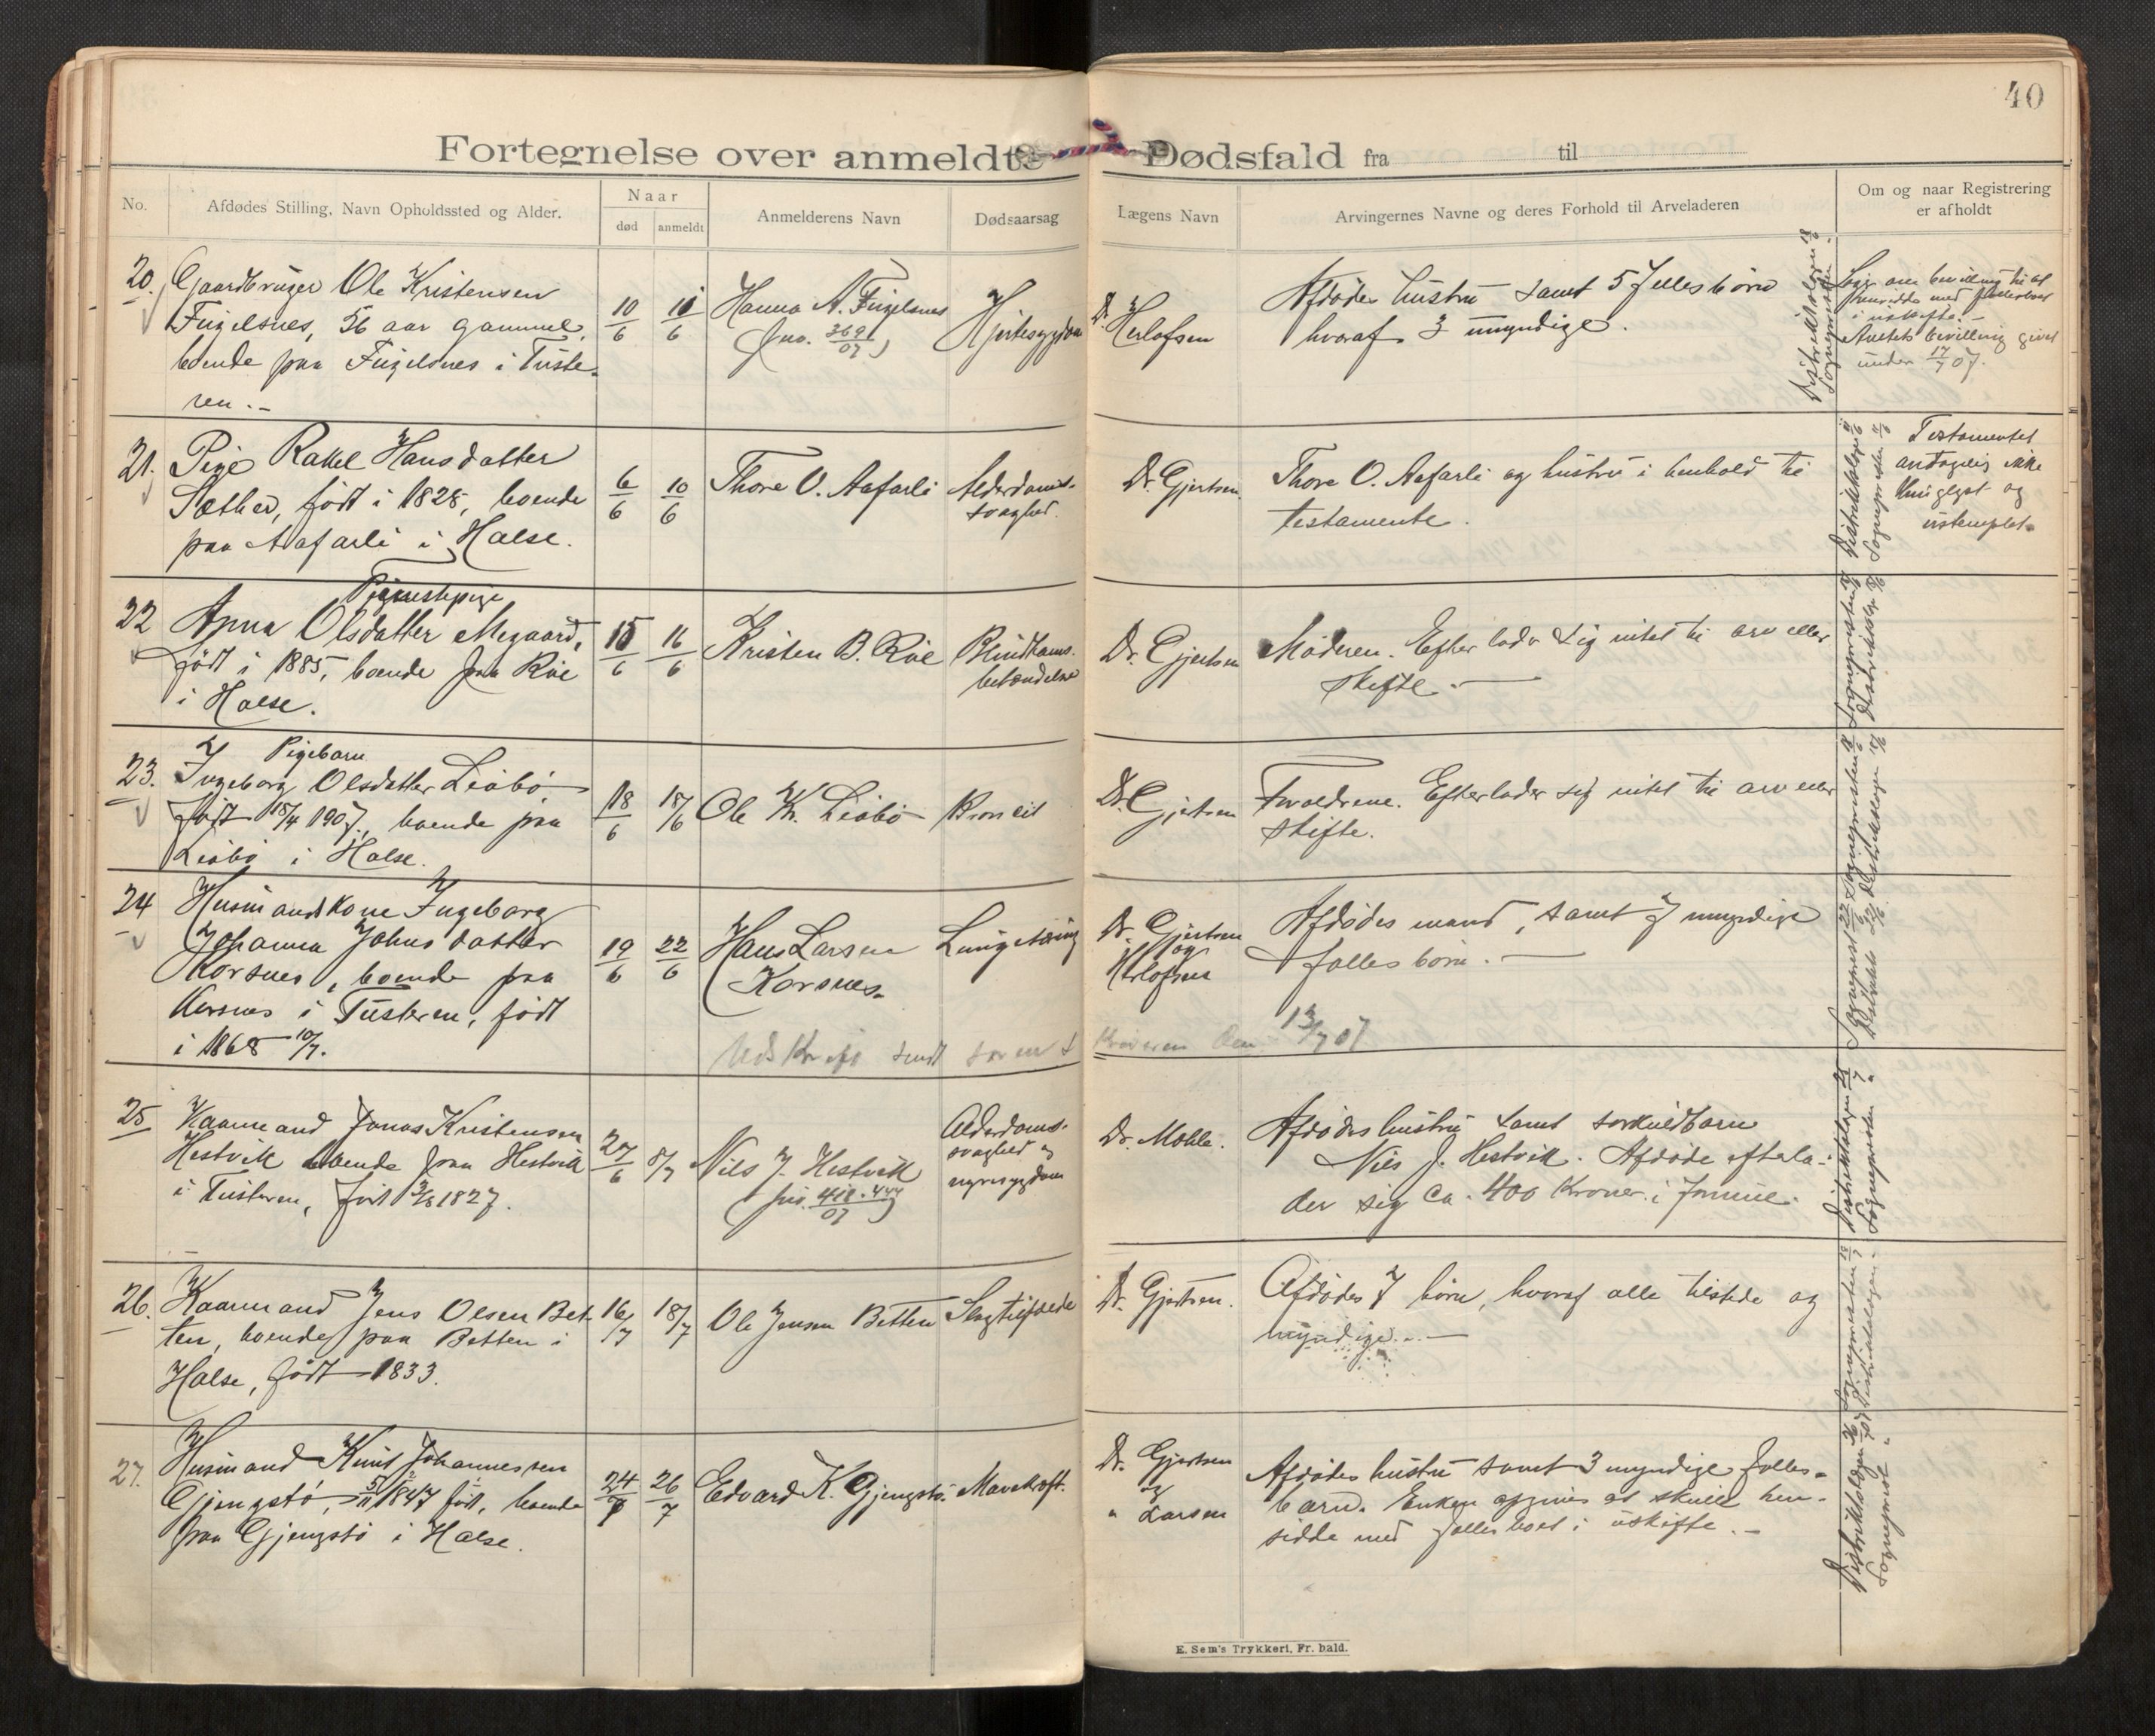 40
Fortegnelse over anmeldte Dødsfald fra til
No.
Afdødes Stilling, Navn Opholdssted og Alder.
Naar
død
anmeldt
Anmelderens Navn
Dødsaarsag
Lægens Navn
Arvingernes Navne og deres Forhold til Arveladeren
Om og naar Registrering
er afholdt
20.
Gaardbruger Ole Kristensen
Fugelsnes, 56 aar gammel,
boende paa Fugelsnes i Tuste-
ren.-
10/6
10/6
Hanna A. Fugelsnes
(jno. 369/07)
Hjertesygdom
Dr. Herlofsen
Afdødes hustru samt 5 fellesbørn
hvoraf 3 umyndige.
Distriktslægen 18/6
Sognepresten
Søger om bevilling til at
hensidde med fællesboet
i uskifte.-
Amtets bevilling givet
under 17/7 07.
21.
Pige Rakel Hansdatter
Sæther, født i 1828, boende
paa Aafarli i Halse.
6/6
10/6
Thore O. Aafarli
Alderdoms-
svaghed.
Dr. Gjertsen
Thore O. Aafarli og hustru i henhold til
testamente.
Distriktslægen
Sognepresten
Testamentet
antagelig ikke
thinglyst og
ustemplet.
22
Tjenestepige
Anna Olsdatter Megaard,
født i 1885, boende paa Roe
i Halse.
15/6
16/6
Kristen B. Roe
Blindtarms-
betændelse
Dr. Gjertsen
Moderen. Efterlader sig intet til arv eller
skifte.-
Sognepresten
Distriktslægen
23.
Pigebarn
Ingeborg Olsdatter Liabø
født 18/4 1907, boende paa
Liabø i Halse.
18/6
18/6
Ole K. Liabø
Bronkit
Dr. Gjertsen
Forældrene. Efterlader sig intet til arv eller
skifte.
Sognepresten
Distriktslægen
24
Husmandskone Ingeborg
Johanna Johnsdatter
Korsnes, boende paa
Korsnes i Tusteren, født
i 1868 10/7.
19/6
22/6
Hans Larsen
Korsnes.
Lungetæring
Dr. Gjertsen
og
Herlofsen
Afdødes mand, samt 7 umyndige
fellesbørn.-
Udskrift sendt
den 13/7 07
Sogneprest 22/6
25
Kaarmand Jonas Kristensen
Hestvik boende paa Hestvik
i Tusteren, født 3/8 1827.
27/6
8/7
Nils J. Hestvik
(jno. 418.444/07)
Alderdoms-
svaghed og
nyresygdom
Dr. Mohle.
Afdødes hustru samt særkuldbarn
Nils J. Hestvik. Afdøde efterla-
der sig ca. 400 kroner i formue.
Distriktslægen
Sognepresten "
26.
Kaarmand Jens Olsen Bet-
ten, boende paa Betten i
Halse, født 1833.
16/7
18/7
Ole Jensen Betten
Slagtilfælde
Dr. Gjertsen.
Afdødes 7 børn, hvoraf alle tilstede og
myndige.-
Sognepresten 18/7
Distriktslægen "
27.
Husmand Knut Johannessen
Gjengstø, 5/11 1847 født, boende
paa Gjengstø i Halse.
24/7
26/7
Edvard K. Gjengstø.
Mavekræft.
Dr. Gjertsen
og
" Larsen
Afdødes hustru samt 3 myndige felles-
børn. Enken opgives at skulle hen-
sidde med fellesboet i uskifte.-
Distriktslægen
Sogneprest "
E. Sem's Trykkeri, Fr. hald.